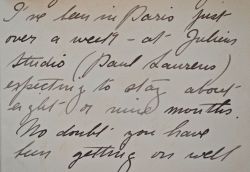 I've been in Paris just
over a week - at Julians
Studio (Paul Laurens)
expecting to stay about
eight or nine months.
No doubt you have
been getting on well